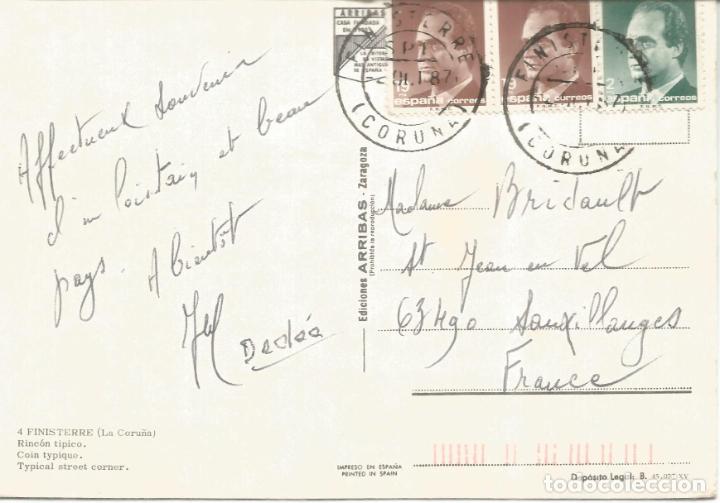 Affectueux souvenir
d'un lointain et beau
pays. A bientôt
Dédée
4 FINISTERRE (La Coruña)
Rincón típico.
Coin typique.
Typical street corner.
ARRIBAS
CASA FUNDADA
Ediciones ARRIBAS - Zaragoza
(Prohibida la reproducción)
IMPRESO EN ESPAÑA
PRINTED IN SPAIN
FINISTERRE
(CORUÑA)
19
españa correos
19
españa correos
2
españa correos
FINISTERRE
(CORUÑA)
Madame Bridault
St Jean en Val
63490 Sauxillanges
France
Depósito Legal: B.